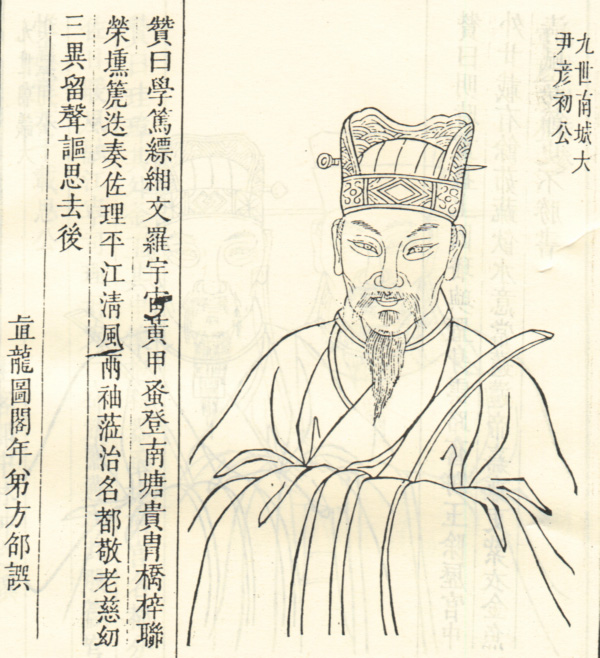 九世南城大
尹彦初公
贊曰學篤縹緗文羅宇宙黃甲蚤登南塘貴胄橋梓聯
榮壎箎迭奏佐理平江清風兩袖蒞治名都敬老慈幼
三異留聲謳思去後
直龍圖閣年弟方邰譔